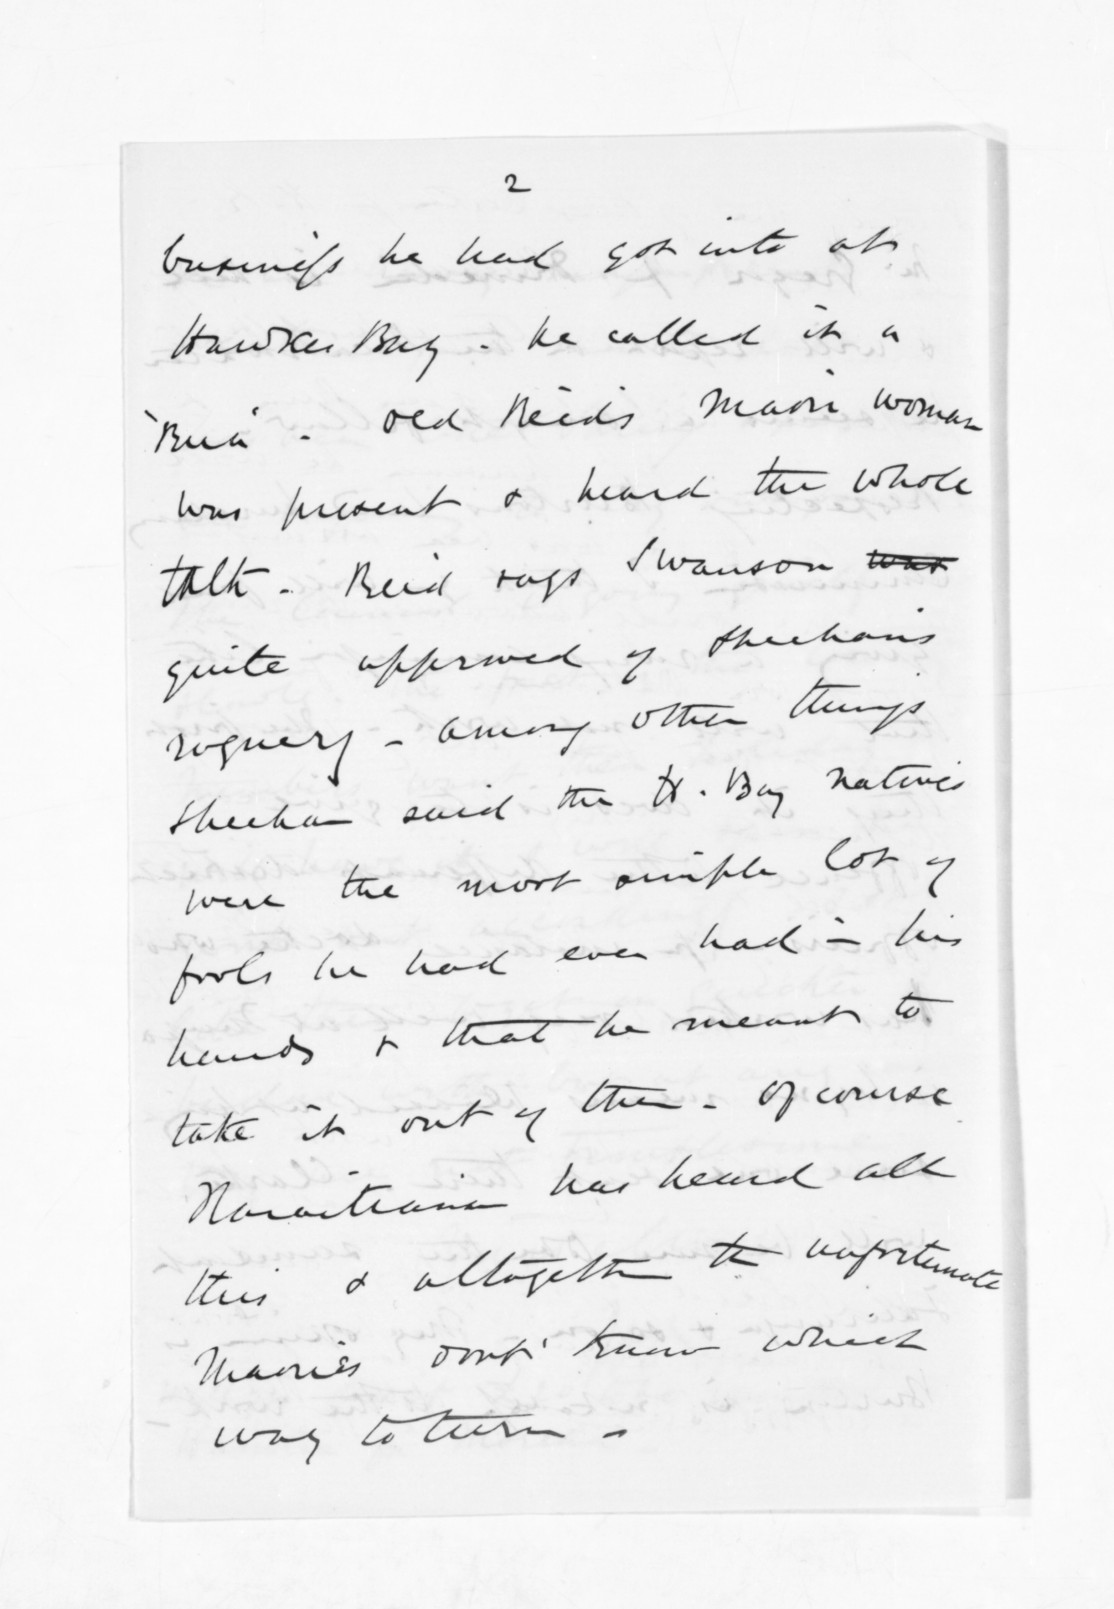 2
business he had got into at
Hawkes Bay - he called it a
'Rua' - old Reid's Maori woman
was present & heard the whole
talk - Reid says Swanson was
quite approved of Sheehan's
roguery - among other things
Sheehan said the H. Bay natives
were the most simple lot of
fools he had ever had in his
hands & that he meant to
take it out of them - Of course
has heard all
this & altogether the unfortunate
Maories dont know which
way to turn -